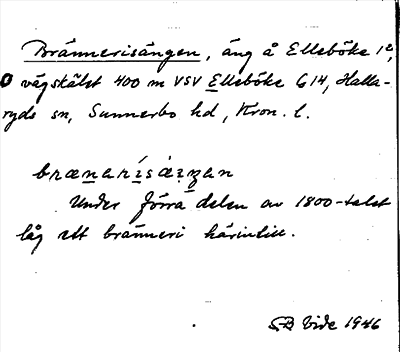 Brännerisängen, äng å Elleböke 1²,
O vägskälet 400 m VSV Elleböke G 14, Halla-
ryds sn, Sunnerbo hd, Kron. l.
brænarísáŋ̀ən
Under förra delen av 1800-talet
låg ett bränneri härintill.
SB Vide 1946